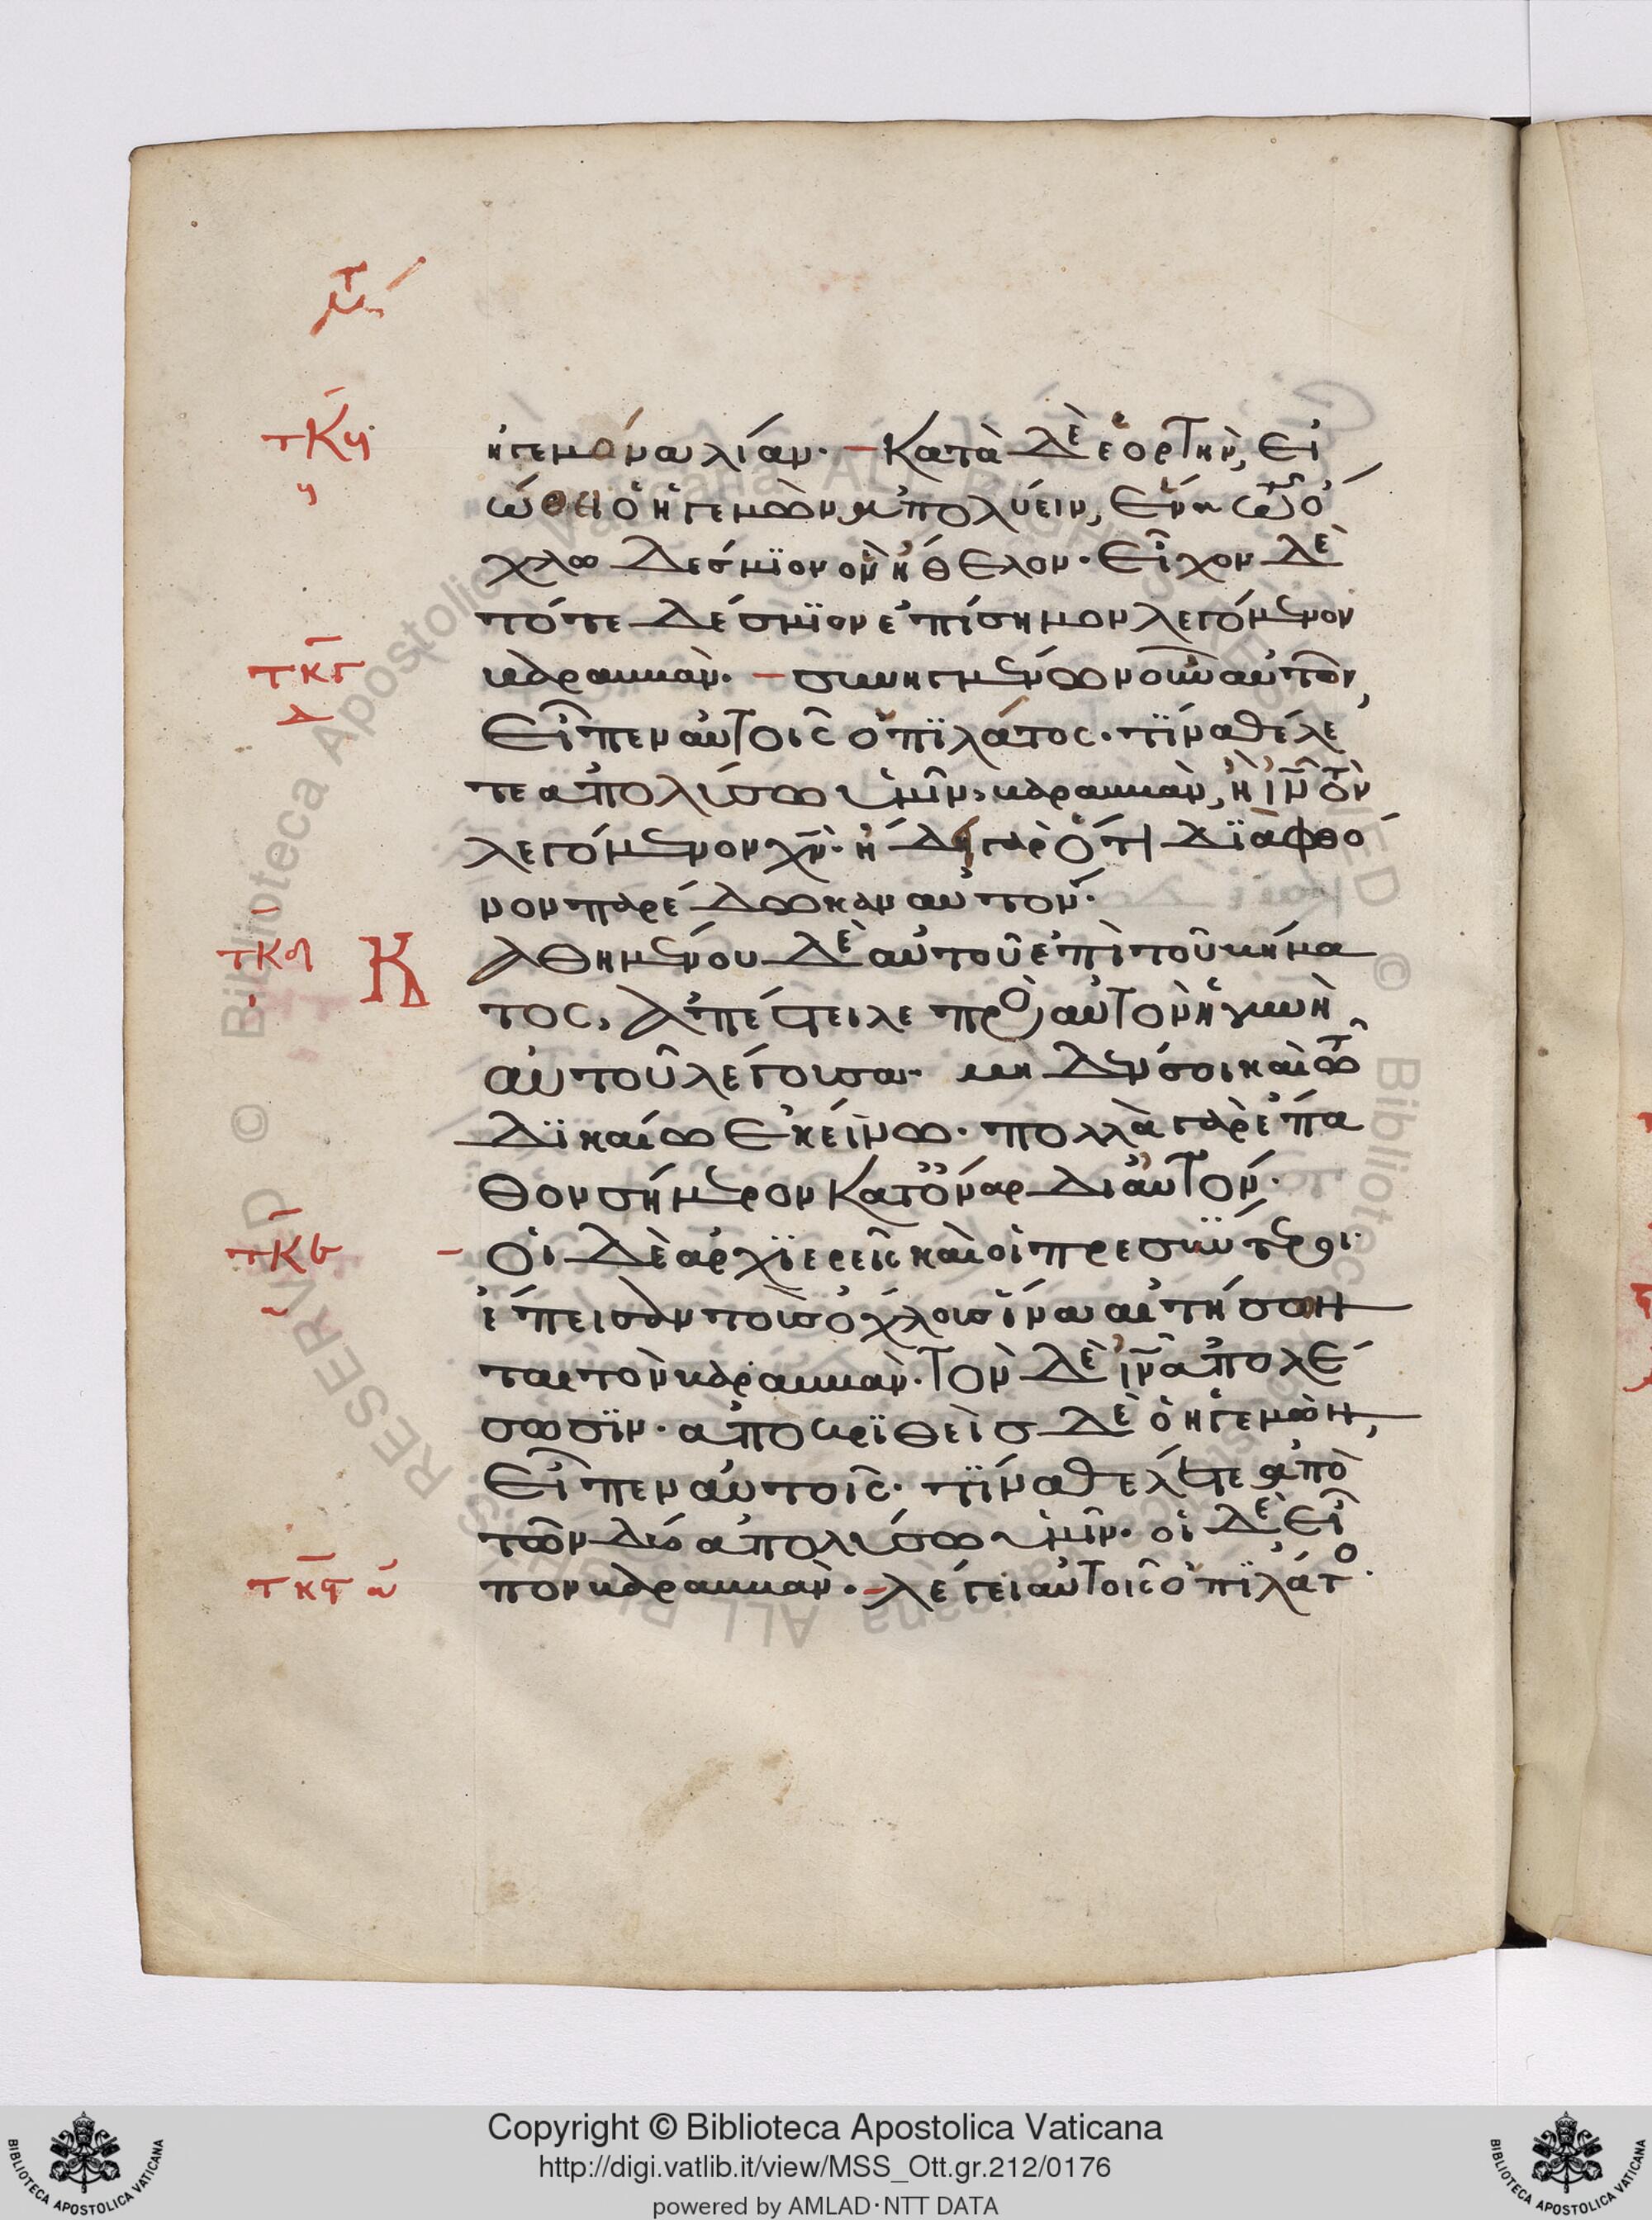 ἡγεμόνα λίαν. – Κατὰ δὲ ἑορτὴν, εἰ
ώθει ὁ ἡγεμὼν ἀπολύειν, ἕνα τῶ ὄ
χλω δέσμϊον ὃν ἤθελον. Εἶχον δὲ
τότε δέσμϊον ἐπίσημον λεγόμενον
βαραββὰν. – συνηγμένων οὖν αὐτῶν,
Εἶπεν αὐτοῖς ὁ πϊλάτος. τϊνα θέλε
τε ἀπολύσω ὑμῖν, βαραββὰν, ἢ ἰν̅ τὸν
λεγόμενον χν̅. ἤδη γὰρ ὅτι δϊὰ φθό
νον παρέδωκαν αὐτόν.
Κ
αθημένου δὲ αὐτοῦ ἐπὶ τοῦ βήμα
τος, ἀπέστειλε πρὸς αὐτὸν ἡ γυνὴ
αὐτοῦ λέγουσα. μηδέν σοι καὶ τῶ
δϊκαίω ἐκείνω. πολλὰ γὰρ ἔπα
θον σήμερον κατ' ὄναρ δι' αὐτόν.
– Οἱ δὲ ἀρχϊερεῖς καὶ οἱ πρεσβϋτεροι.
ἔπεισαν τοὺσ ὄχλουσ ἵνα αἰτήσων
ται τὸν βαραββὰν. τὸν δὲ ἰν̅ ἀπολέ
σωσϊν. ἀποκρϊθεὶσ δὲ ὁ ἡγεμὼν,
Εἶπεν αὐτοῖς. τϊνα θέλετε ἀπὸ
τῶν δύο ἀπολύσω ὑμῖν. οἱ δὲ εἶ
πον βαραββὰν. – λέγει αὐτοῖς ὁ πϊλάτο.
τκγ
δ
τκδ
τκε
τκϛ α
Copyright © Biblioteca Apostolica Vaticana
http://digi.vatlib.it/view/MSS_Ott.gr.212/0176
powered by AMLAD·NTT DATA
BIBLIOTECA APOSTOLICA VATICANA
BIBLIOTECA APOSTOLICA VATICANA